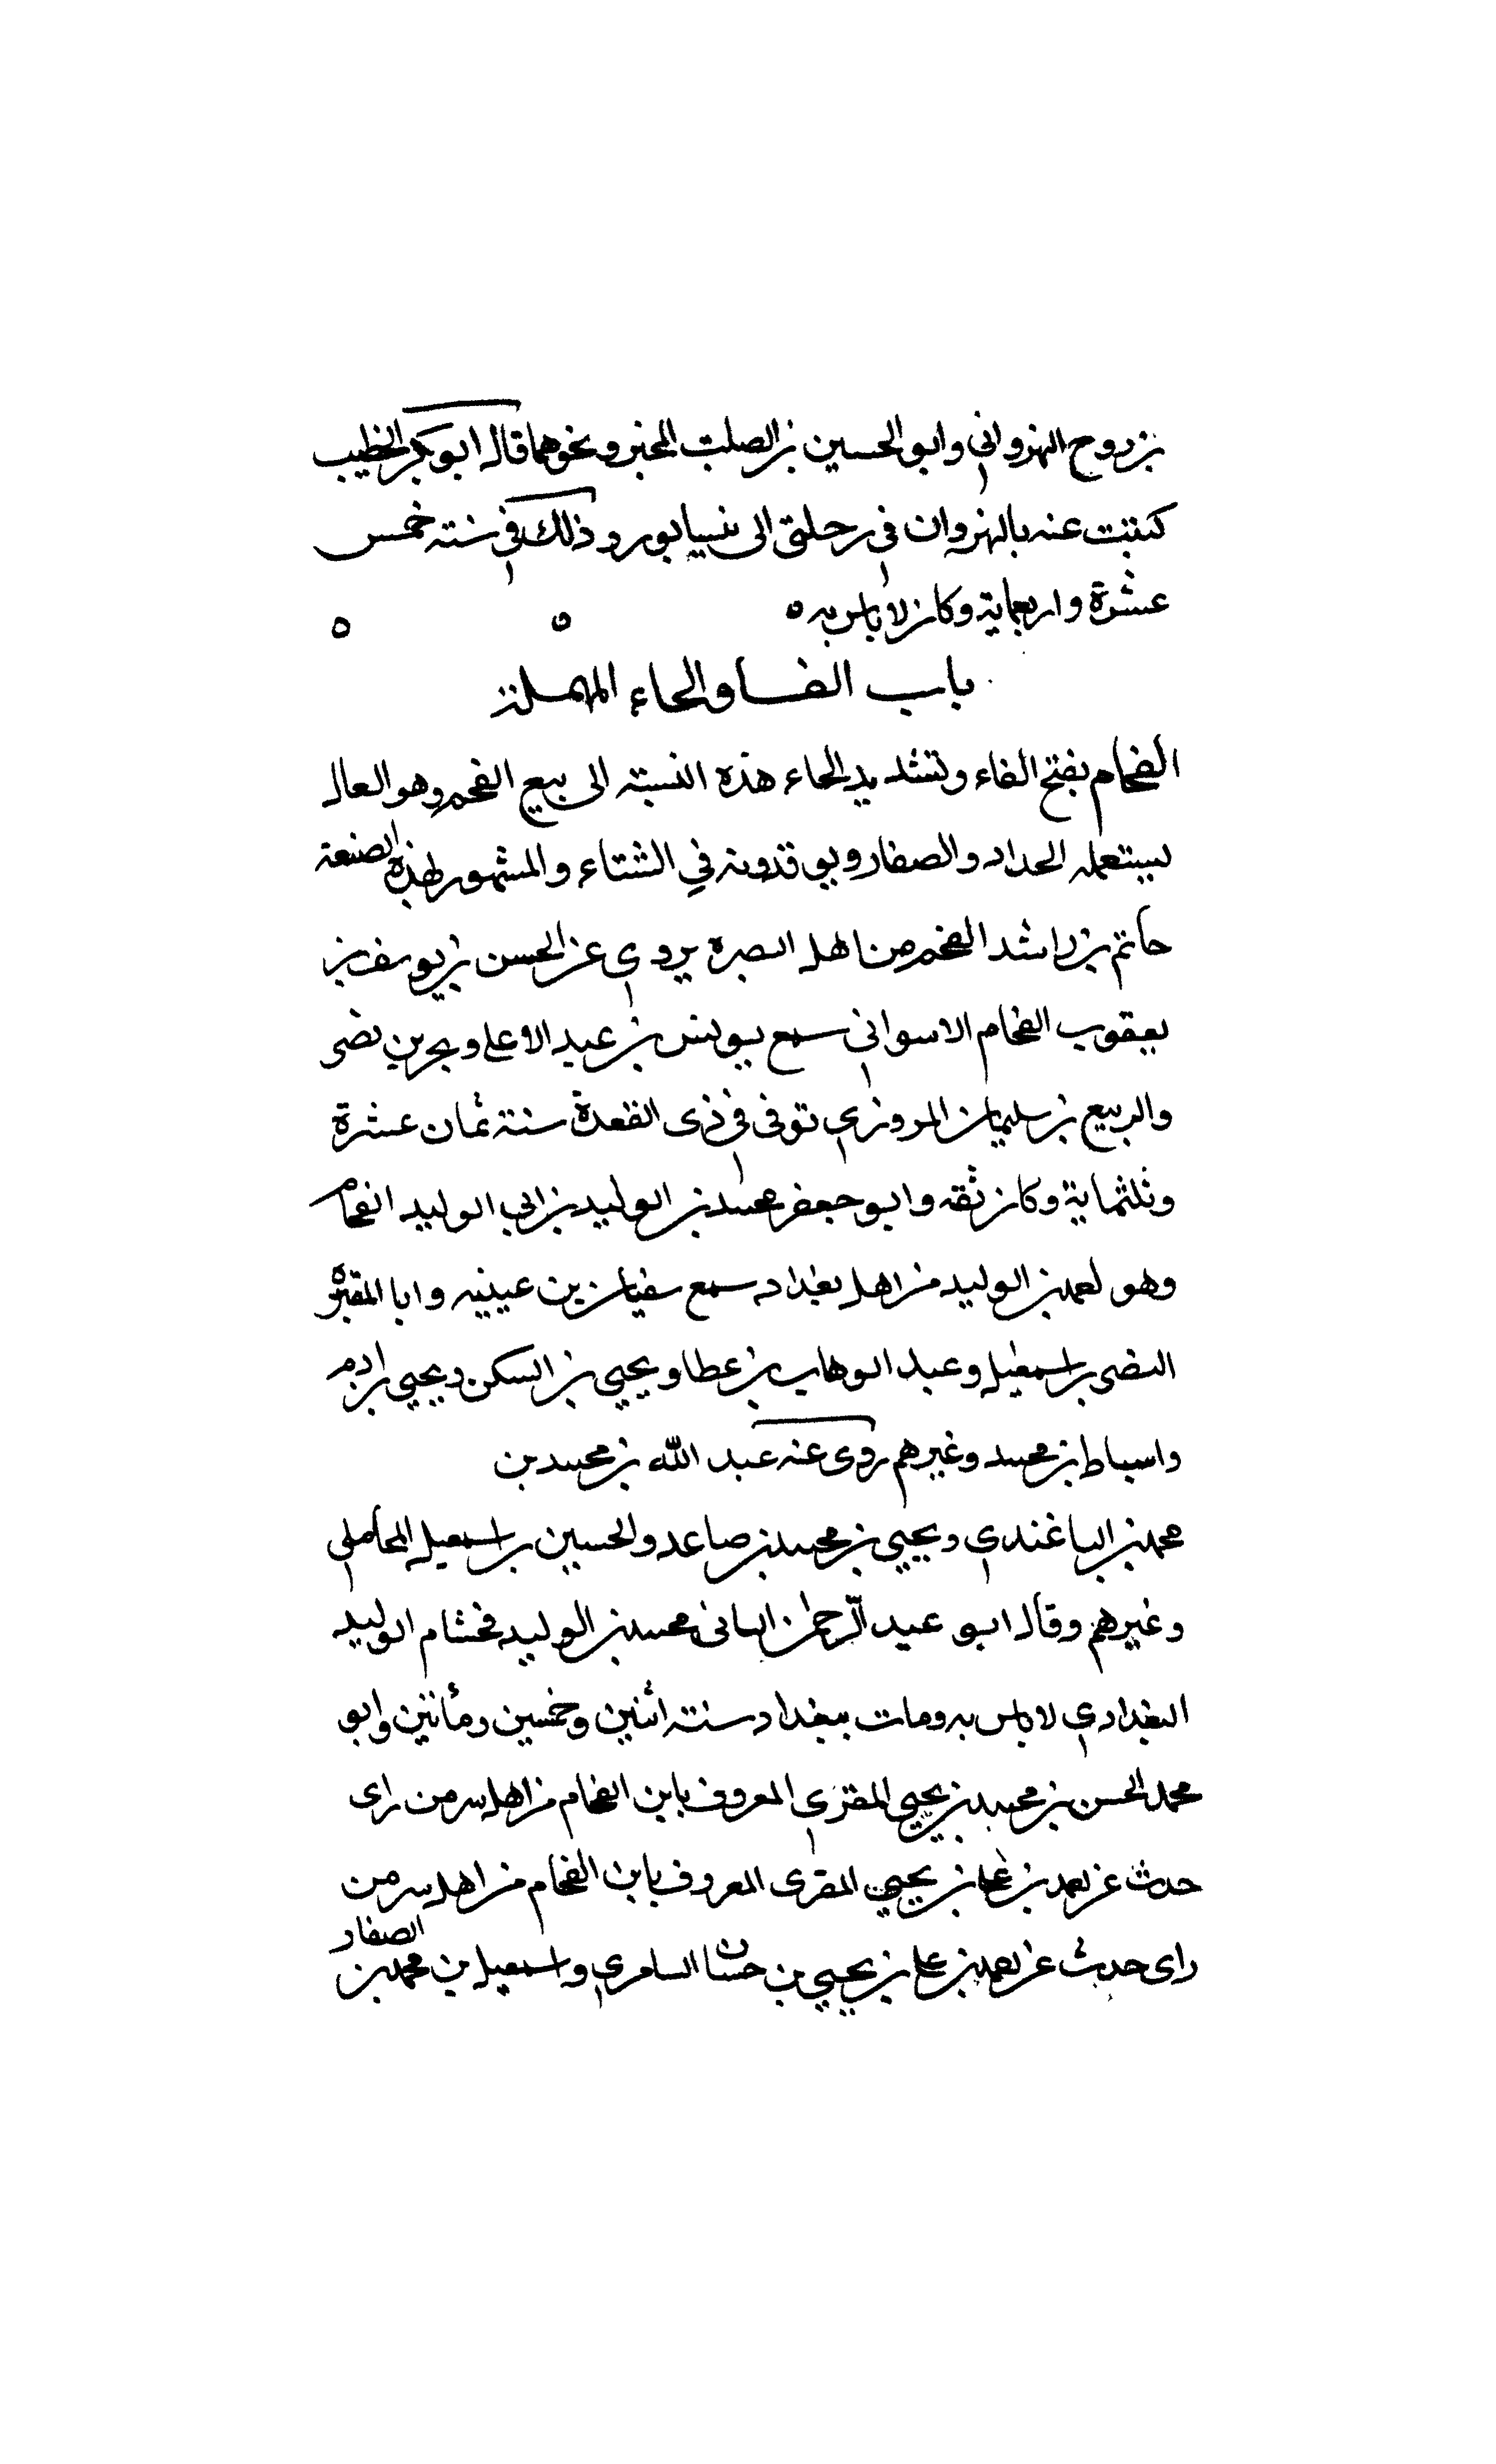 بن روح النهرواني وابو الحسين بن الصلت المجبر ونحوهما قال ابو بكر الخطيب
كتبت عنه بالنهروان في رحلتي الى نيسابور وذلك في سنة خمس
عشرة واربعماية وكان لا باس به ه ه ه
باب الفا والحاء المهملة
الفحام بفتح الفاء وتشديد الحاء هذه النسبة الى بيع الفحم وهو الذي
يستعمله الحداد والصفار ويوقدونه في الشتاء والمشهور بهذه الصنعة
حاتم بن راشد الفحم من اهل البصرة يروي عن الحسن بن يوسف بن
يعقوب الفحام الاسواني سمع يونس بن عبد الاعلى وبحر بن نصر
والربيع بن سليمان المروزي توفى في ذى القعدة سنة ثمان عشرة
وثلثماية وكان ثقه وابو جعفر محمد بن الوليد بن ابي الوليد الفحام
وهو محمد بن الوليد من اهل بغداد سمع سفيان بن عيينه وابا المقبره
النضر بن اسمعيل وعبد الوهاب بن عطا ويحيى بن السكن ويحيى بن ادم
واسباط بن محمد وغيرهم روى عنه عبد الله بن محمد بن
محمد بن الباغندي ويحيى بن محمد بن صاعد والحسين بن اسمعيل المحاملي
وغيرهم وقال ابو عبد الرحمن محمد بن الوليد فحشام الوليد
البغدادي لا باس به ومات ببغداد سنة اثنين وخمسين ومأتين وابو
محمد الحسن بن محمد بن يحيى المقرى المعروف بابن الفحام من اهل سر من راى
حدث عن محمد بن على بن يحيى المقرى المعروف بابن الفحام من اهل سر من
راى حدث عن محمد بن على بن يحيى بن حسان السامري واسمعيل بن محمد بن الصفار